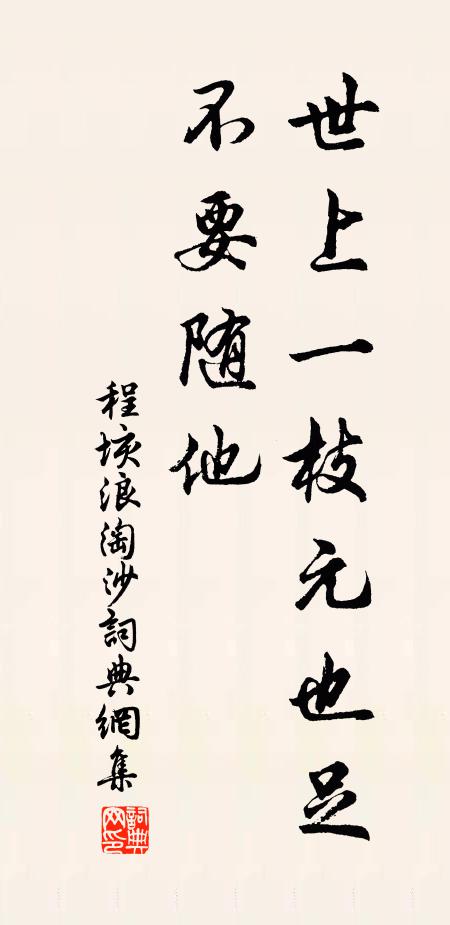 世上一枝元也足
不要随他
程垓浪淘沙詞典網集
詞典網印